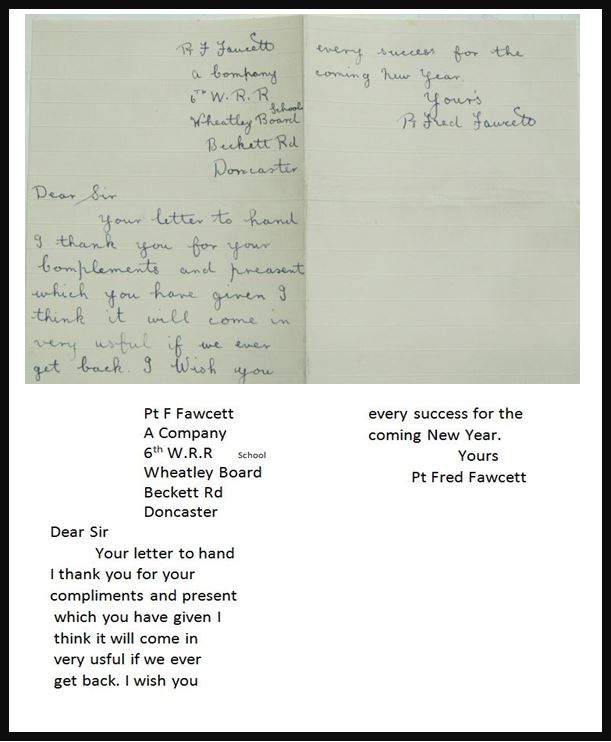 Pt F Fawcett
A Company
6th W. R. R
School
Wheatley Board
Beckett Rd
Doncaster
Dear Sir
Your letter to hand
I thank you for your
Complements and preasent
which you have given I
think it will come in
very usful if we ever
get back. I Wish you
every success for the
coming New Year.
Yours
Pt Fred Fawcett
Pt F Fawcett
A Company
6th W.R.R School
Wheatley Board
Beckett Rd
Doncaster
Dear Sir
Your letter to hand
I thank you for your
compliments and present
which you have given I
think it will come in
very usful if we ever
get back. I wish you
every success for the
coming New Year.
Yours
Pt Fred Fawcett